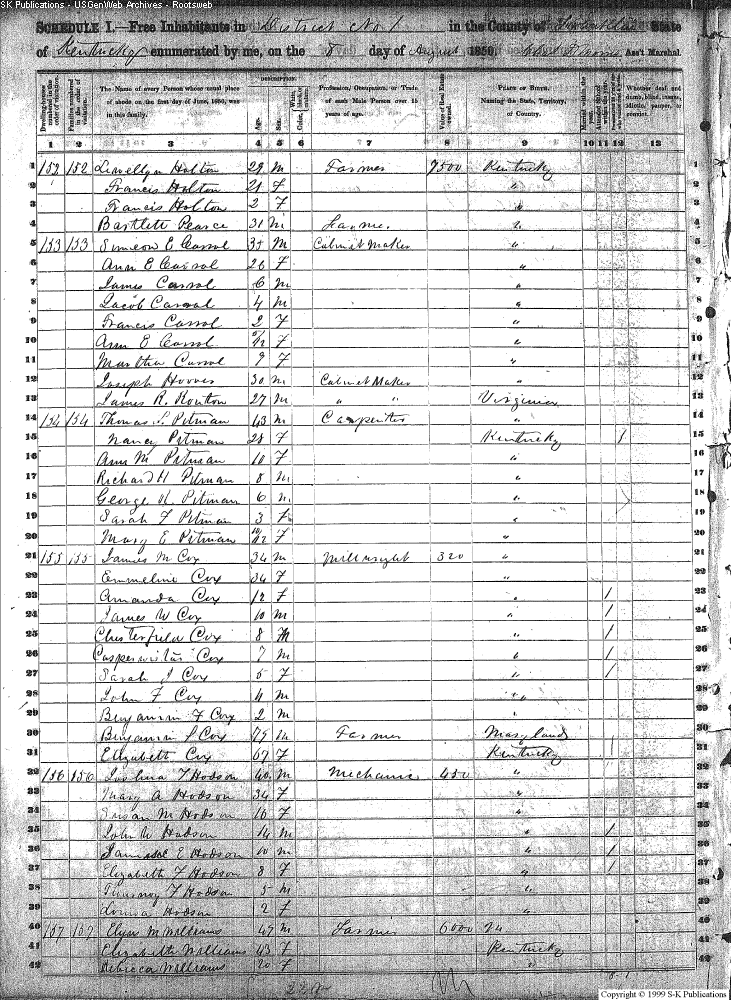 SK Publications - USGenWeb Archives - Rootsweb
SCHEDULE I.—Free Inhabitants in District No 1 in the County of Franklin State
of Kentucky enumerated by me, on the 8 day of August 1850. Ass't Marshal.
DESCRIPTION.
Dwelling-houses numbered in the order of visitation.
Families numbered in the order of visitation.
The Name of every Person whose usual place of abode on the first day of June, 1850, was in this family.
Age.
Sex.
Color, White, black, or mulatto.
Profession, Occupation, or Trade of each Male Person over 15 years of age.
Value of Real Estate owned.
PLACE OF BIRTH. Naming the State, Territory, or Country.
Married within the year.
Whether deaf and dumb, blind, insane, idiotic, pauper, or convict.
1 2 3 4 5 6 7 8 9 10 11 12 13
1 152 152 Lewellyn Holton 29 M Farmer 7500 Kentucky 1
2 Francis Holton 21 F " 2
3 Francis Holton 2 F " 3
4 Bartlett Pearce 31 M Farmer " 4
5 153 153 Simeon E Carrol 35 M Cabinet Maker " 5
6 Ann E Carrol 26 F " 6
7 James Carrol 6 M " 7
8 Jacob Carrol 4 M " 8
9 Francis Carrol 2 F " 9
10 Ann E Carrol F " 10
11 Martha Carrol 9 F " 11
12 Joseph Hoover 30 M Cabinet Maker " 12
13 James R. Routton 27 M " " Virginia 13
14 154 154 Thomas S. Pitman 43 M Carpenter " 14
15 Nancy Pitman 28 F Kentucky / 15
16 Ann M Pitman 10 F " 16
17 Richard H Pitman 8 M " 17
18 George W Pitman 6 M " 18
19 Sarah F Pitman 3 F " 19
20 Mary E Pitman 10/12 F " 20
21 155 155 James M Cox 34 M Millwright 320 " 21
22 Emmeline Cox 34 F " 22
23 Amanda Cox 12 F " / 23
24 James W Cox 10 M " / 24
25 Chesterfield Cox 8 M " / 25
26 Casperwistar Cox 7 M " / 26
27 Sarah J Cox 5 F " / 27
28 John F Cox 4 M " 28
29 Benjamin F Cox 2 M " 29
30 Benjamin S Cox 75 M Farmer Maryland 30
31 Elizabeth Cox 67 F Kentucky 31
32 156 156 Joshua F Hodson 40 M Mechanic 450 " 32
33 Mary A Hodson 34 F " 33
34 Susan M Hodson 16 F " 34
35 John W Hodson 14 M " / 35
36 E Hodson 10 M " / 36
37 Elizabeth F Hodson 8 F " / 37
38 F Hodson 5 M " 38
39 Hodson 2 F " 39
40 157 157 M Williams 47 M Farmer 6000 40
41 Elizabeth Williams 43 F Kentucky 41
42 Rebecca Williams 20 F " 42
Copyright © 1999 S-K Publications